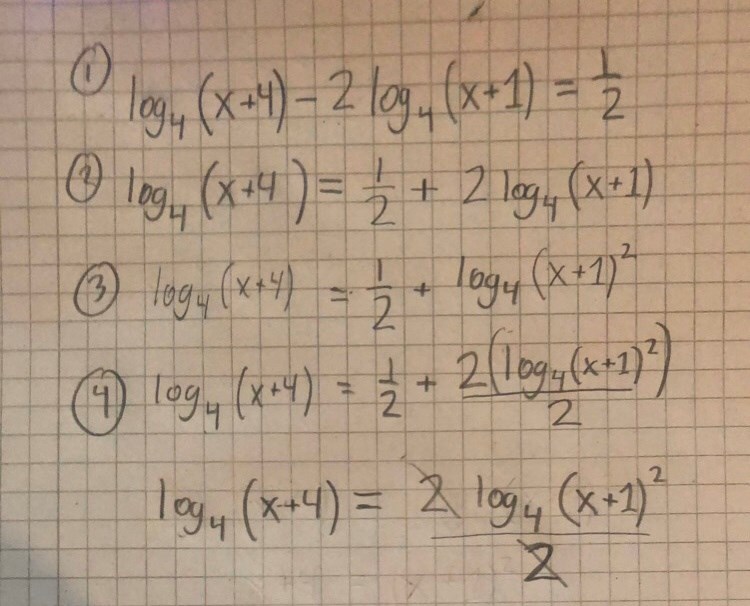 ① log₄(x+4) - 2 log₄(x+1) = 1/2
② log₄(x+4) = 1/2 + 2 log₄(x+1)
③ log₄(x+4) = 1/2 + log₄(x+1)²
④ log₄(x+4) = 1/2 + 2(log₄(x+1)²)/2
log₄(x+4) = 2 log₄(x+1)²/2